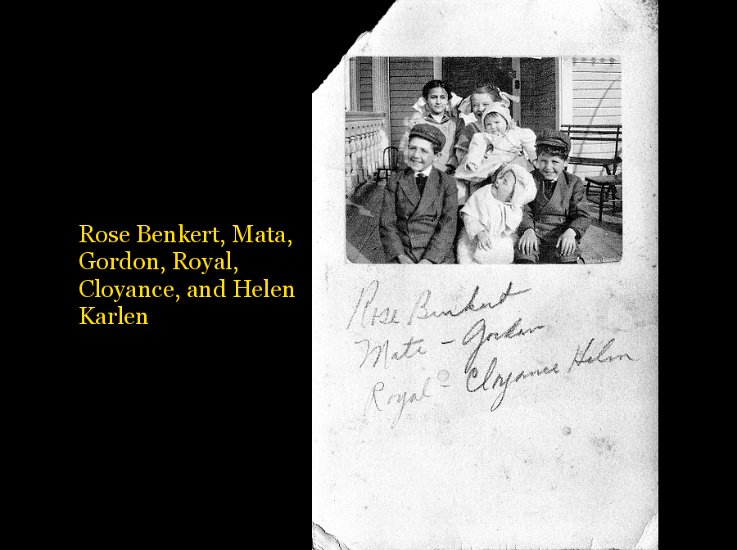 Rose Benkert, Mata,
Gordon, Royal,
Cloyance, and Helen
Karlen
Rose Benkert
Mata - Gordon
Royal Cloyance Helen